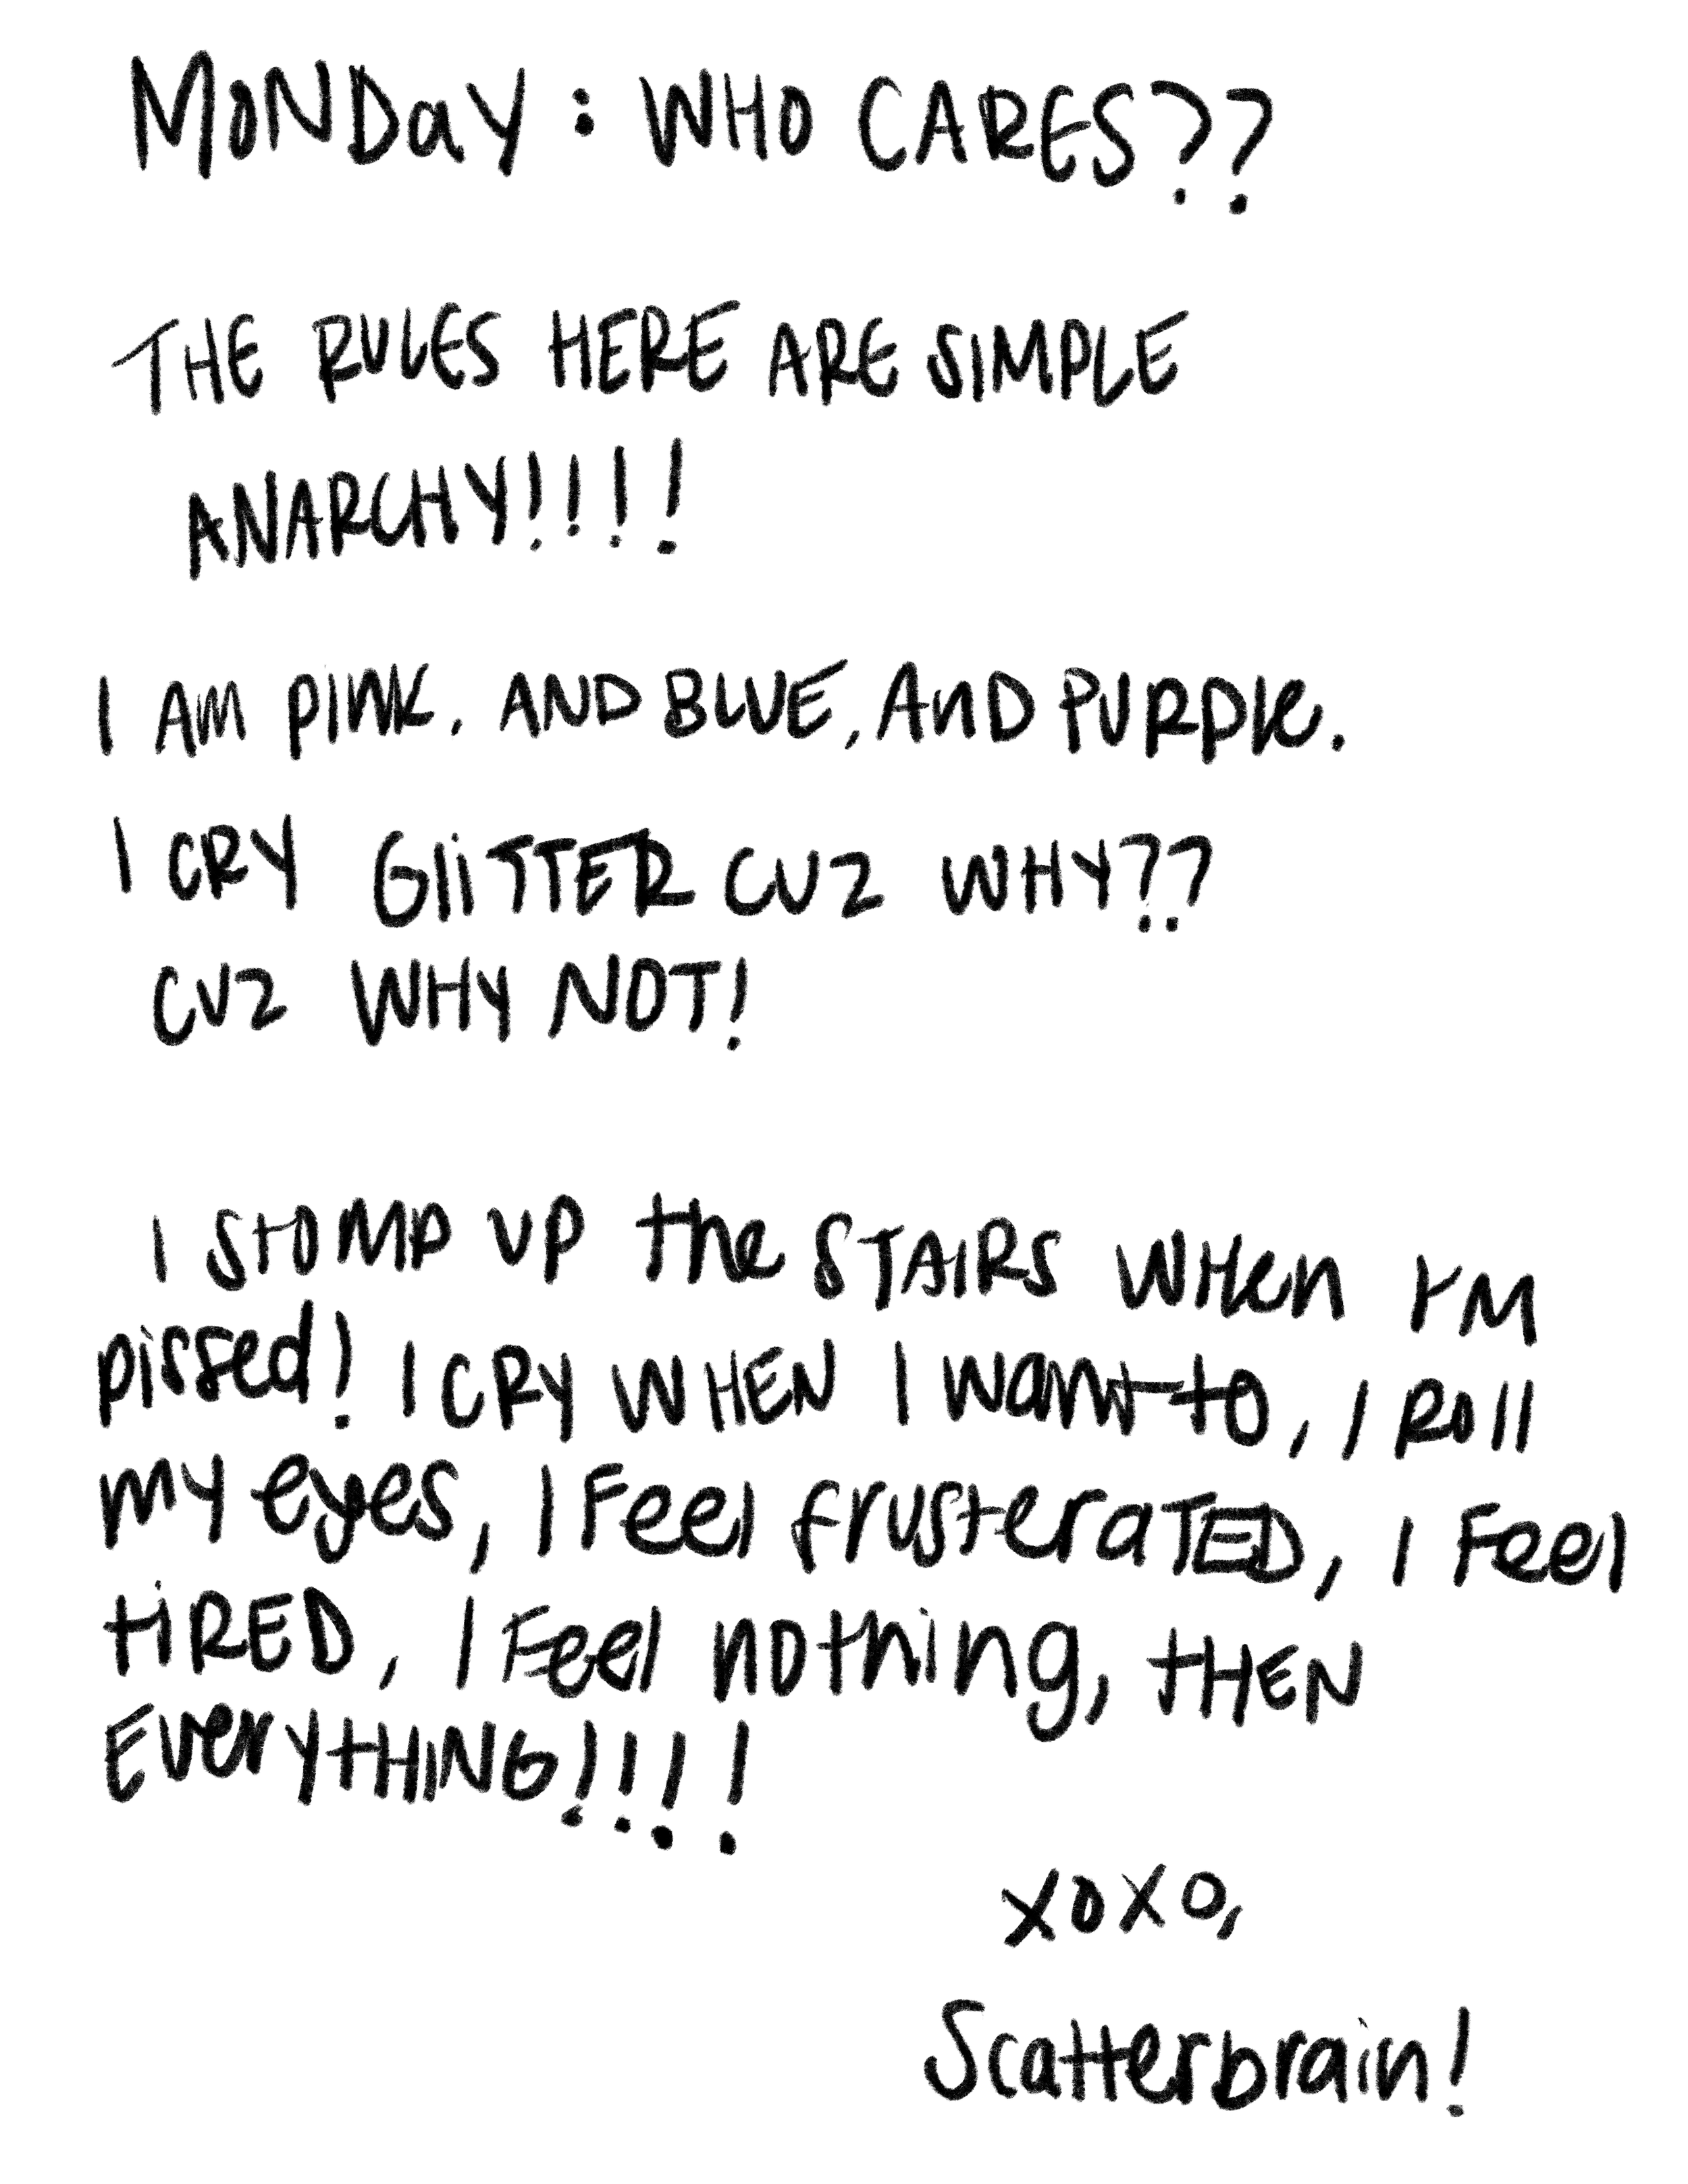 MONDaY: WHO CARES??
THE RULES HERE ARE SIMPLE
ANARCHY!!!!
I AM PINK. AND BLUE, AnD PURPle.
I CRY GliTTER CUZ WHY??
CUZ WHY NOT!
I StOMP UP the STAIRS WHen I'M
pissed! I CRY WHEN I want to, I ROll
my eyes, I Feel frusteraTED, I Feel
tiRED, I Feel nothing, tHEN
EverYtHING!!!!
xoxo,
Scatterbrain!